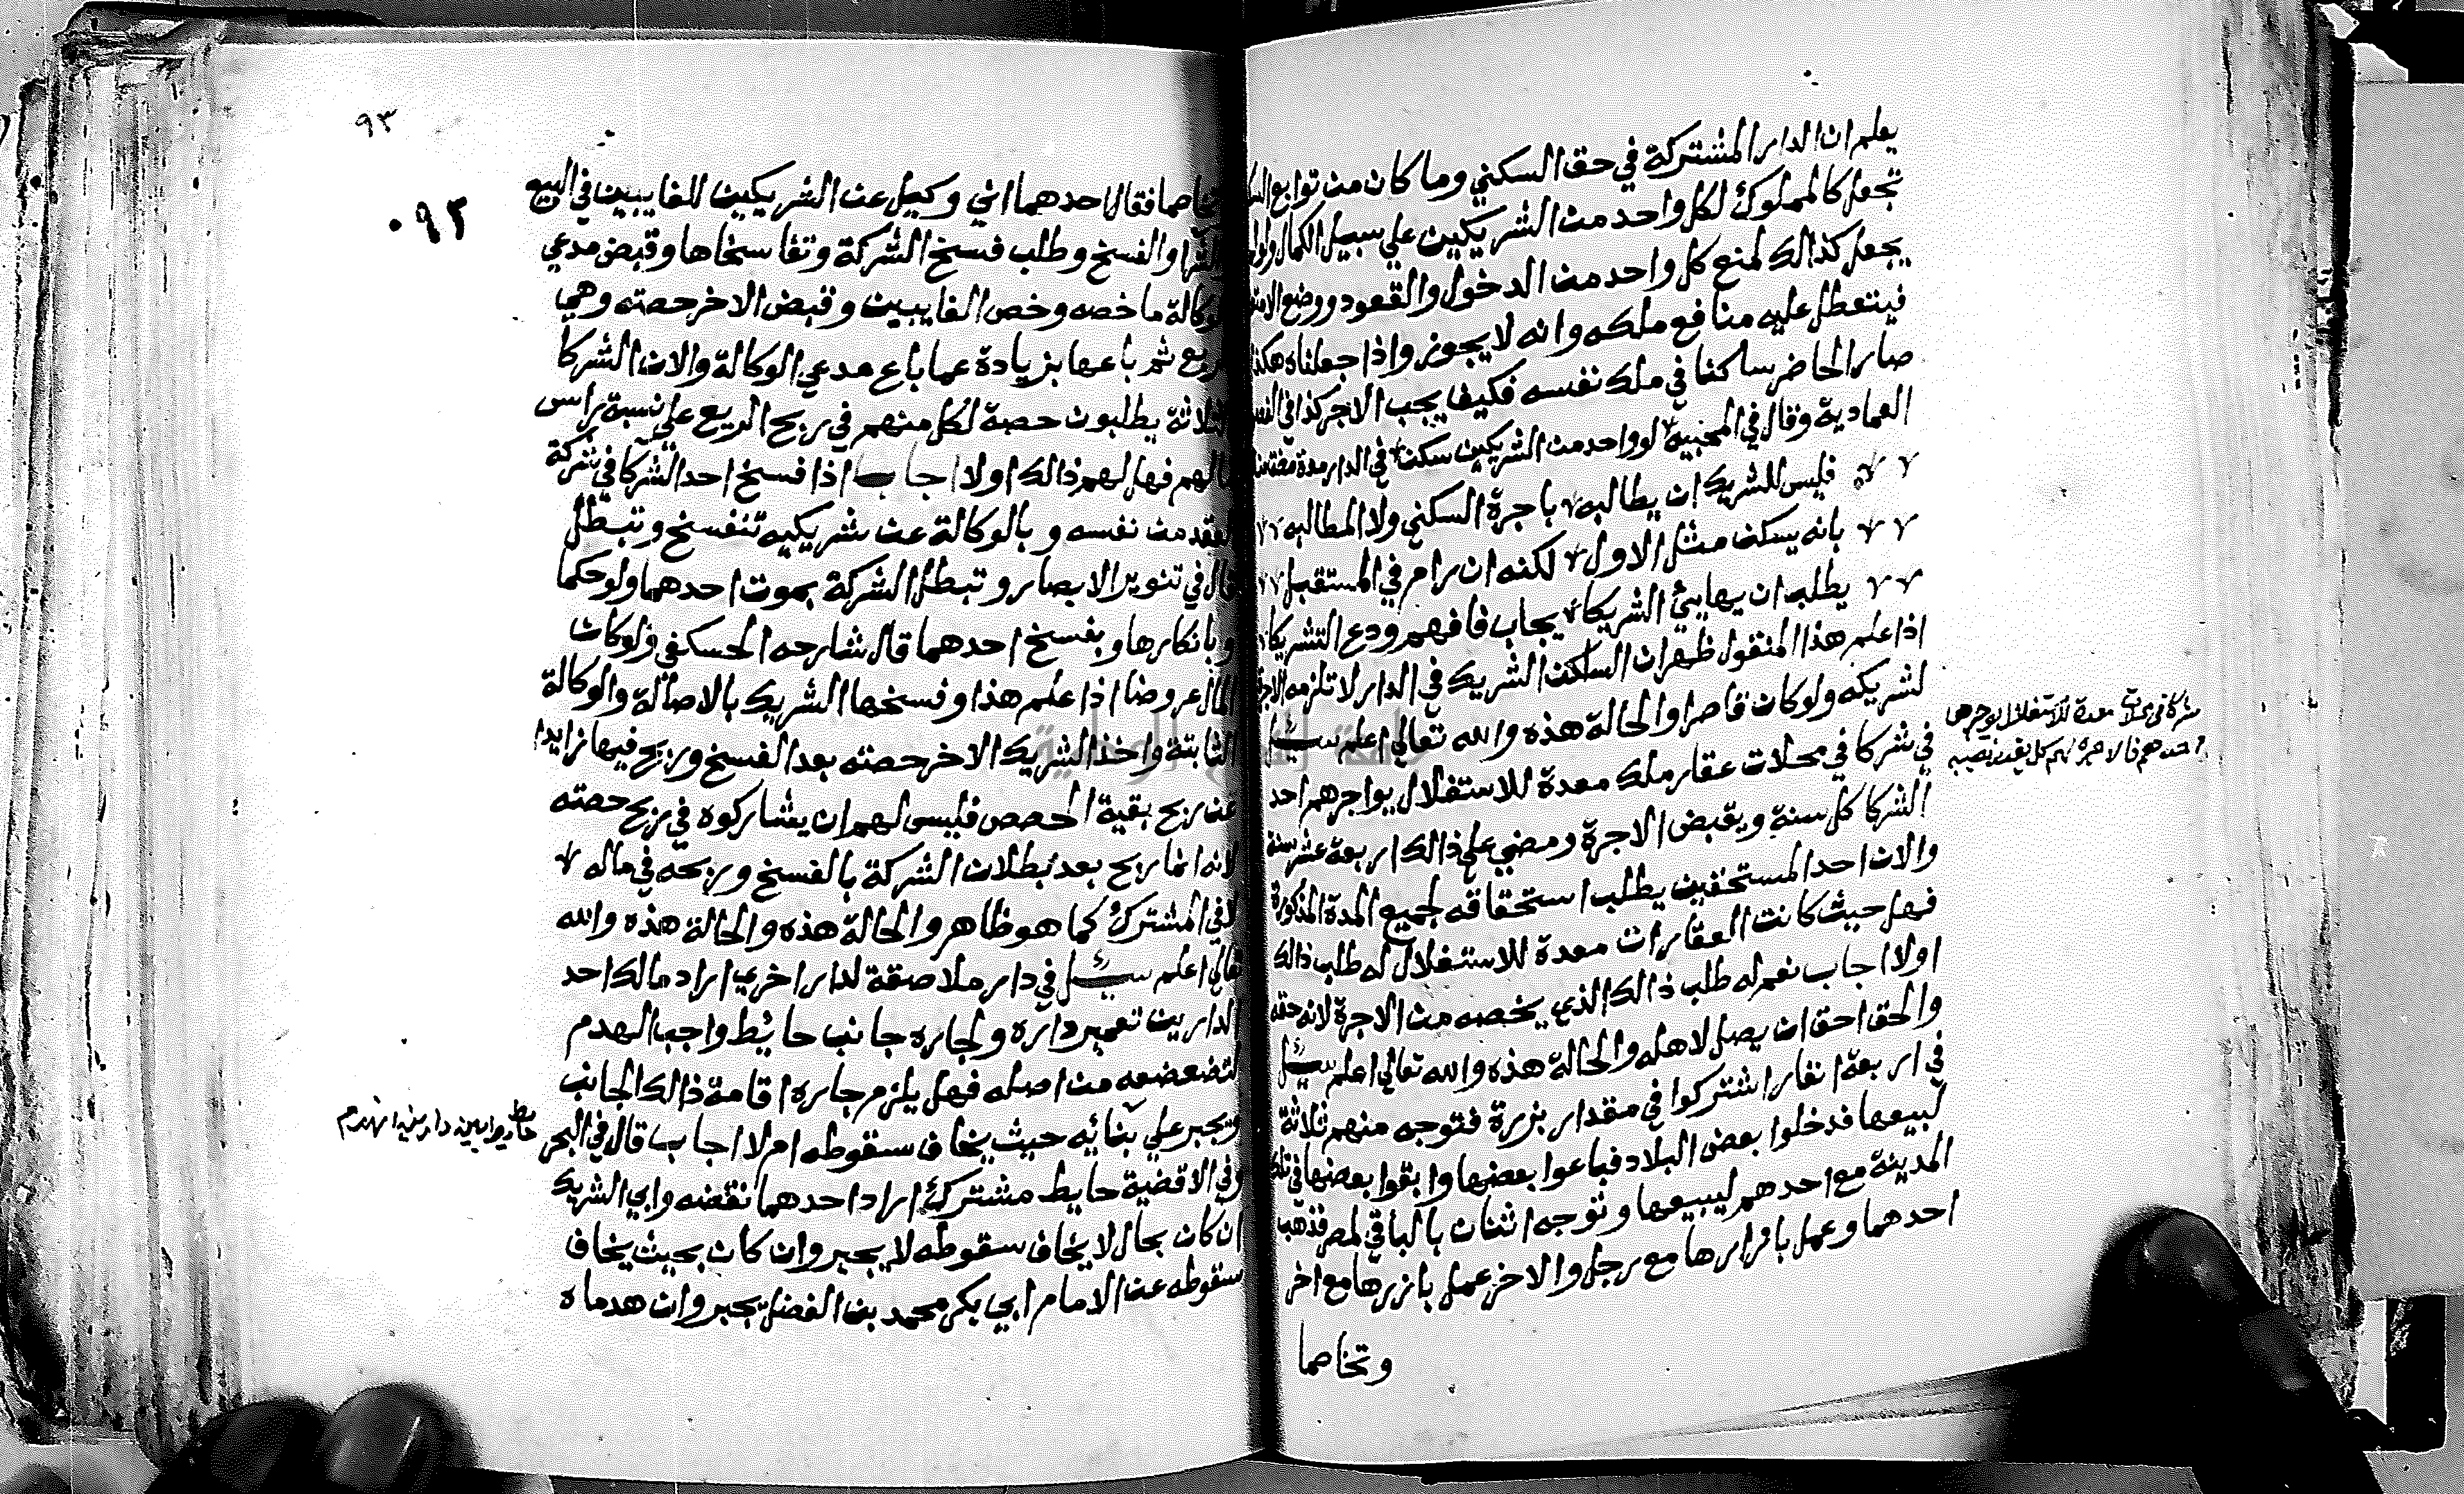 يعلم ان الدار المشتركة في حق السكني وما كان من توابع السكني
تجعل كالمملوك لكل واحد من الشريكين علي سبيل الكمال ولو لم
يجعل كذالك لمنع كل واحد من الدخول والقعود ووضع الامتعة
فيتعطل عليه منافع ملكه وانه لا يجوز واذا جعلناه هكذا
صار الحاضر ساكنا في ملك نفسه فكيف يجب الاجر كذا في الفصول
العمادية وقال في المحبية لو واحد من الشريكين سكن في الدار مدة مضت
فليس للشريك ان يطالبه باجرة السكني ولا المطالبه
بانه يسكن مثل الاول لكنه ان رام في المستقبل
يطلب ان يهايئ الشريكا يجاب فافهم ودع التشريكا
اذا علم هذا المنقول ظهر ان الساكن الشريك في الدار لا تلزمه الاجرة
لشريكه ولو كان قاصرا والحالة هذه والله تعالي اعلم سئل
في شركا في محلات عقار ملك معدة للاستغلال يواجرهم احد
الشركا كل سنة ويقبض الاجرة ومضي علي ذالك اربعة عشر سنة
والان احد المستحقين يطلب استحقاقه لجميع المدة المذكورة
فهل حيث كانت العقارات معدة للاستغلال له طلب ذالك
اولا اجاب نعم له طلب ذالك الذي يخصه من الاجرة لانه حقه
والحق احق ان يصل لاهله والحالة هذه والله تعالي اعلم سئل
في اربعة انفار اشتركوا في مقدار بزرة فتوجه منهم ثلاثة
لبيعها فدخلوا بعض البلاد فباعوا بعضها وابقوا بعضها في تلك
المدينة مع احدهم ليبيعها وتوجه اثنان بالباقي لمصر فذهب
احدهما وعمل باقرارها مع رجل والاخر عمل بازرها مع اخر
وتخاصما
شركا في محلات معدة للاستغلال يواجرها
احدهم فالاجرة لهم كل بقدر نصيبه
٩٣
٠٩٢
تخاصما فقال احدهما اني وكيل عن الشريكين الغايبين في البيع
والشرا والفسخ وطلب فسخ الشركة وتفاسخاها وقبض مدعي
الوكالة ما خصه وخص الغايبين وقبض الاخر حصته وهي
الربع ثم باعها بزيادة عما باع مدعي الوكالة والان الشركا
الثلاثة يطلبون حصة لكل منهم في ربح الربع علي نسبة راس
مالهم فهل لهم ذالك اولا اجاب اذا فسخ احد الشركا في شركة
العقد من نفسه وبالوكالة عن شريكيه تنفسخ وتبطل
قال في تنوير الابصار وتبطل الشركة بموت احدهما ولو حكما
وبانكارها وبفسخ احدهما قال شارحه الحسكفي ولو كان
المال عروضا اذا علم هذا وفسخها الشريك بالاصالة والوكالة
الثابتة واخذ الشريك الاخر حصته بعد الفسخ وربح فيها زايدا
عن ربح بقية الحصص فليس لهم ان يشاركوه في ربح حصته
لانه انما ربح بعد بطلان الشركة بالفسخ وربحه في ماله
لا في المشترك كما هو ظاهر والحالة هذه والحالة هذه والله
تعالي اعلم سئل في دار ملاصقة لدار اخري اراد مالك احد
الدارين تعمير داره ولجاره جانب حائط واجب الهدم
لتضعضعه من اصله فهل يلزم جاره اقامة ذالك الجانب
ويجبر علي بنائه حيث يخاف سقوطه ام لا اجاب قال في البحر
وفي الاقضية حايط مشترك اراد احدهما نقضه وابي الشريك
ان كان بحال لا يخاف سقوطه لا يجبر وان كان بحيث يخاف
سقوطه عن الامام ابي بكر محمد بن الفضل يجبر وان هدماه